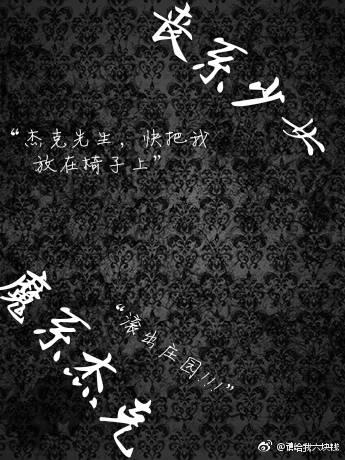 丧系少女
“杰克先生，快把我
放在椅子上”
魔系杰克
“滚出庄园!!!”
@请给我六块钱